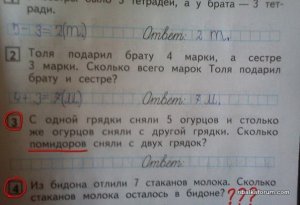 было 5 тетрадей, а у брата — 3 тет-
ради.
5 - 3 = 2(т.) Ответ: 2 т.
2 Толя подарил брату 4 марки, а сестре
3 марки. Сколько всего марок Толя подарил
брату и сестре?
4 + 3 = 7(М) Ответ: 7 м.
3 С одной грядки сняли 5 огурцов и столько
же огурцов сняли с другой грядки. Сколько
помидоров сняли с двух грядок?
Ответ:
4 Из бидона отлили 7 стаканов молока. Сколько
стаканов молока осталось в бидоне? ???